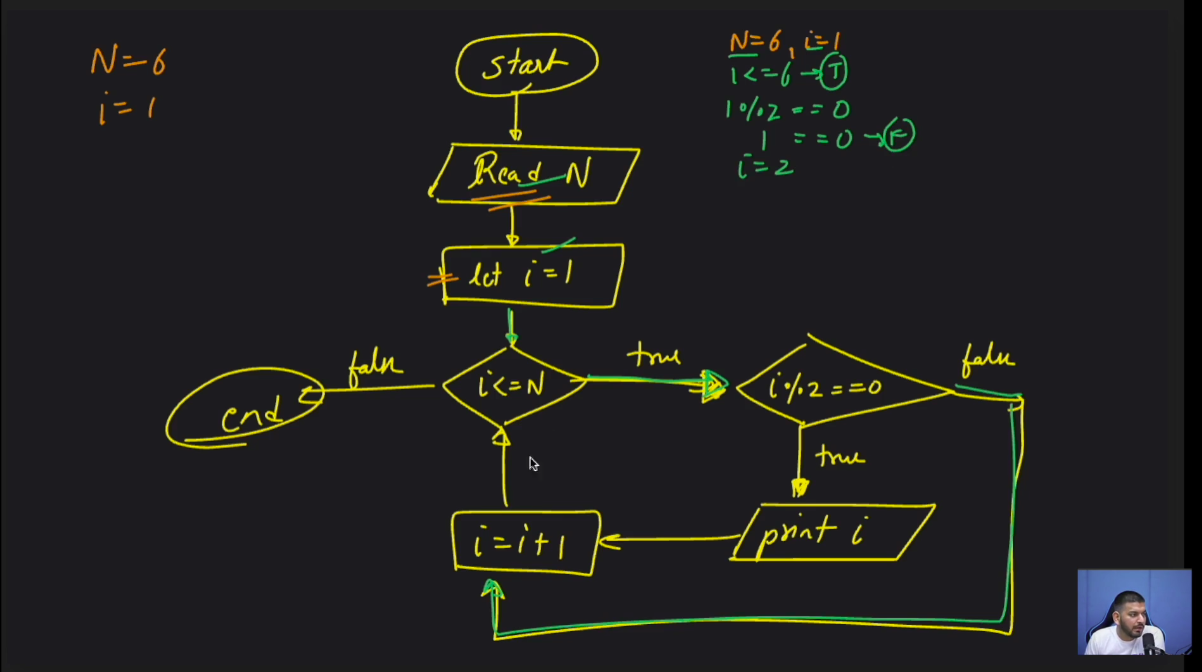 N=6
i=1
start
Read N
let i=1
i<=N
true
false
end
i%2==0
false
true
print i
i=i+1
N=6, i=1
1<=6→T
1%2==0
1==0→F
i=2